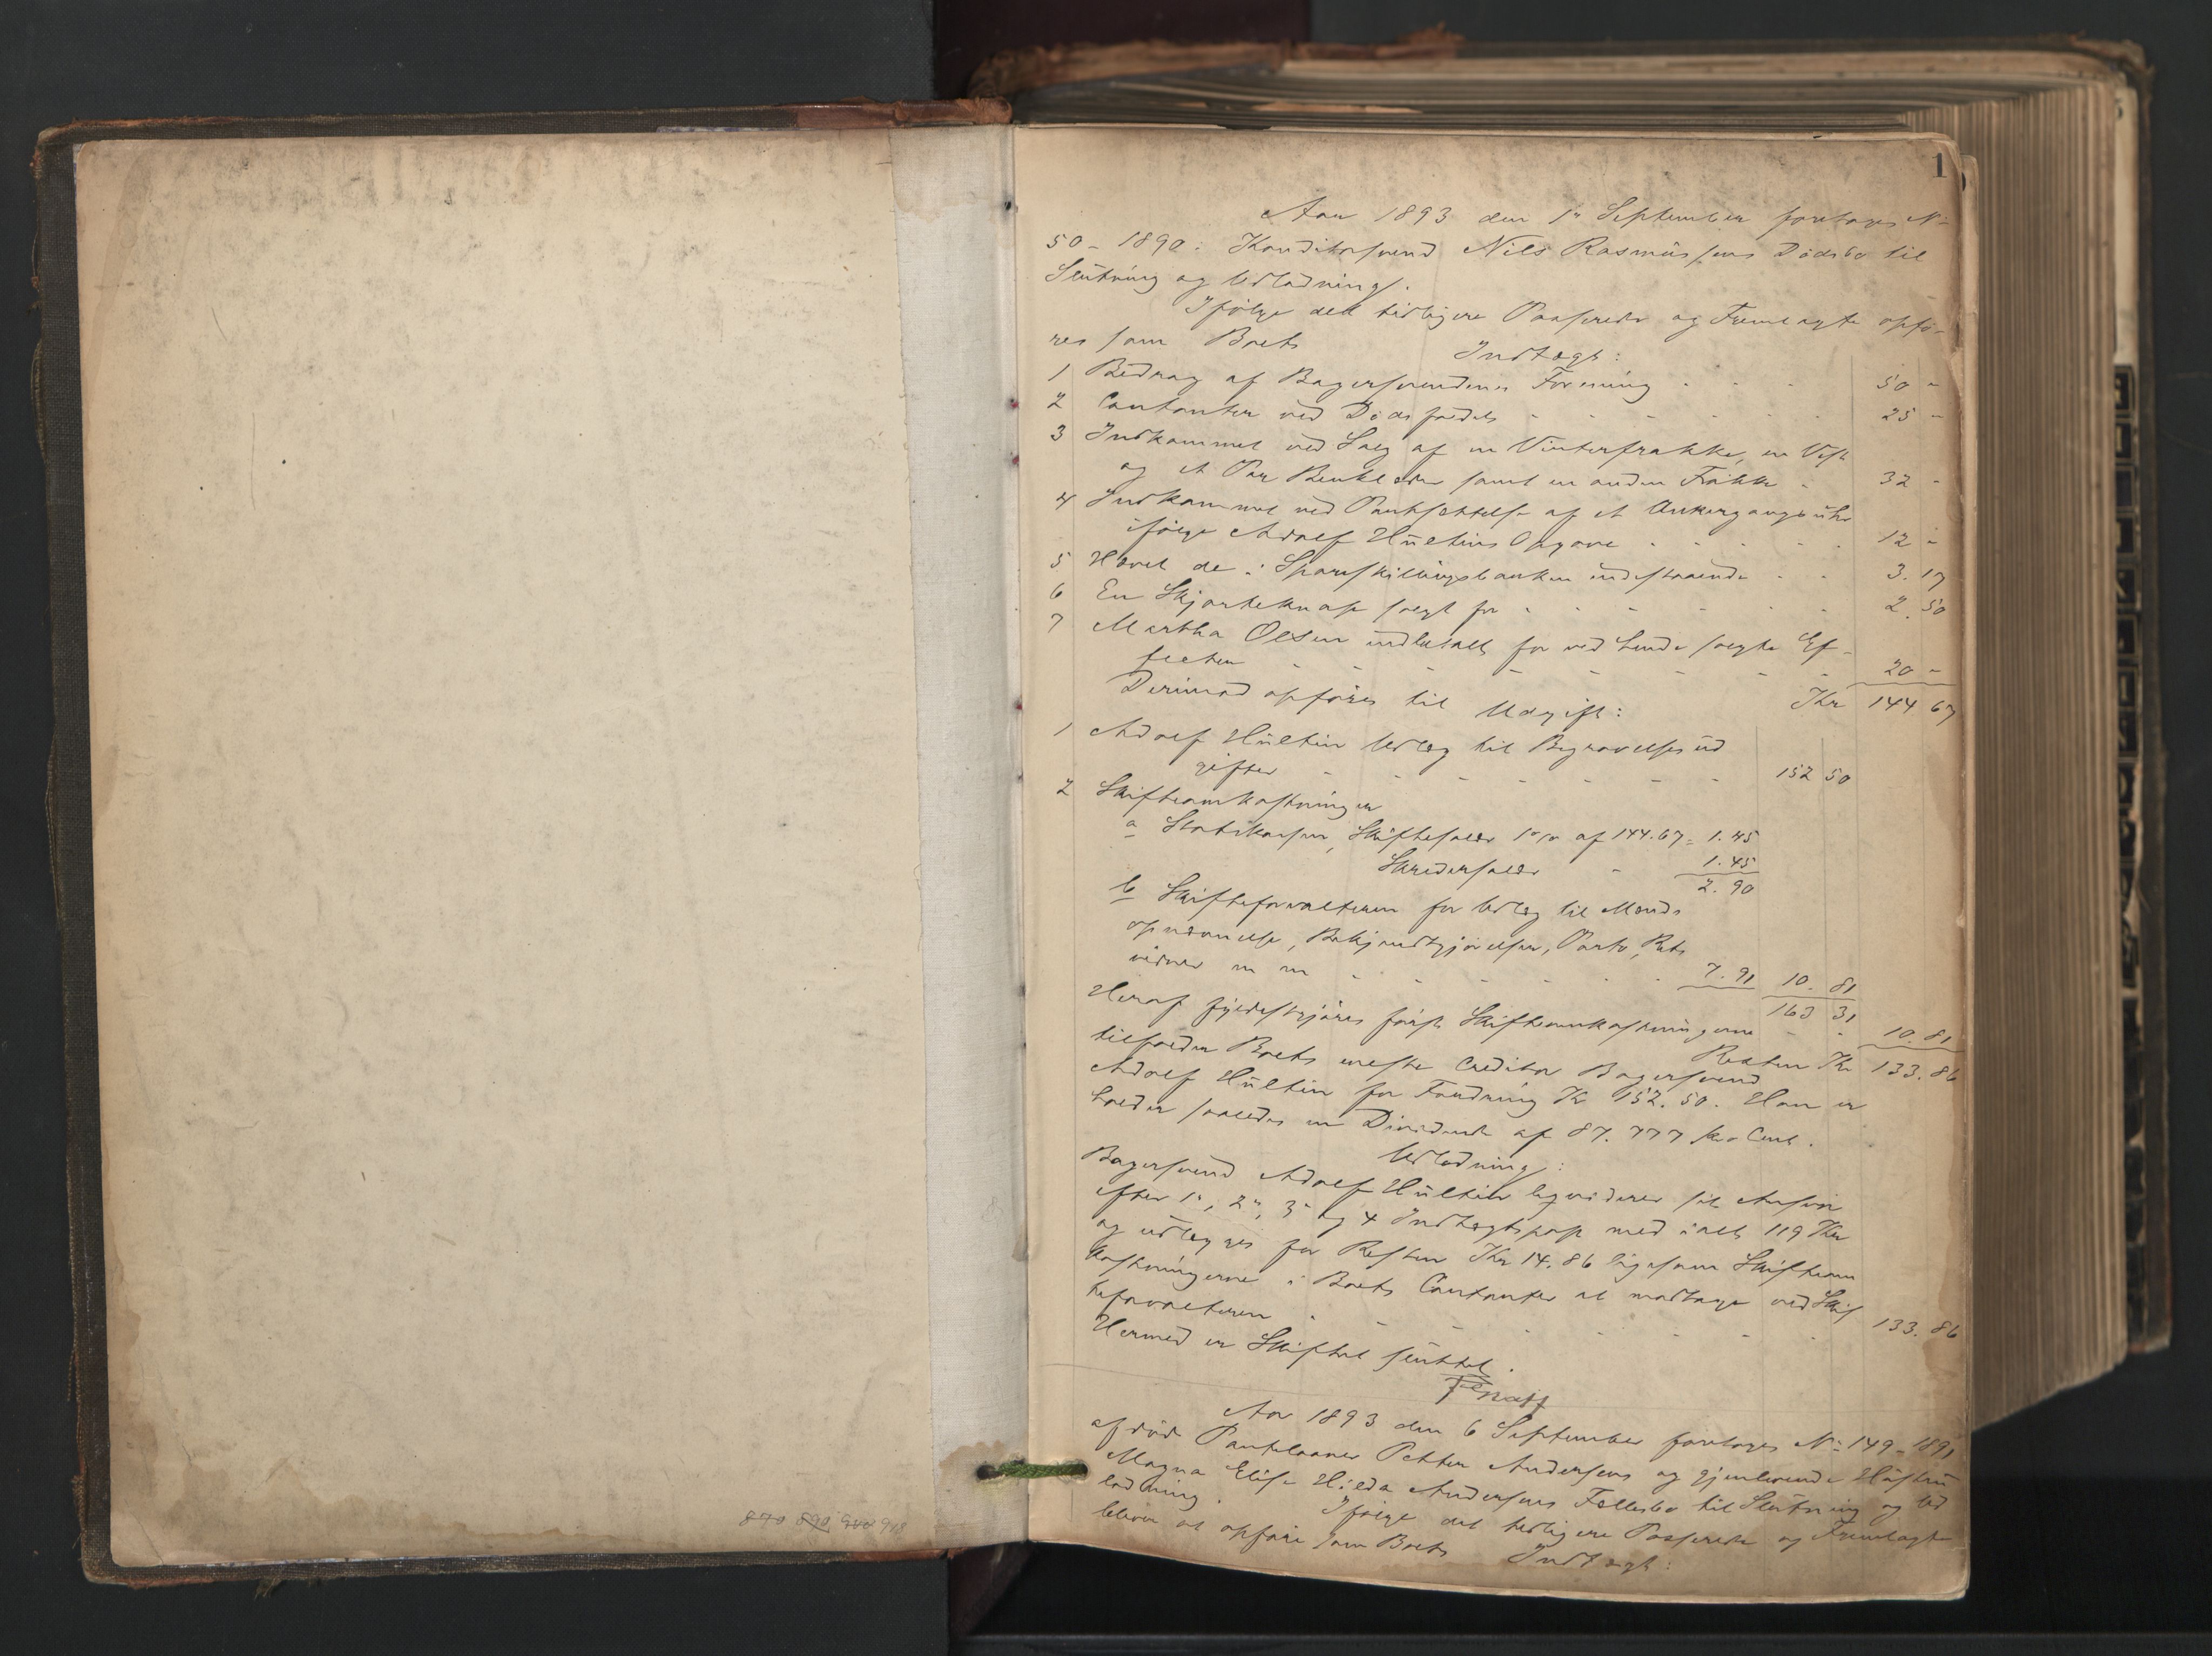 1
Aar 1893 den 1ª September foretages No
50-1890: Konditorsvend Nils Rasmussens Dødsbo til
Slutning og Udlodning.
Ifølge det tidligere Passerede og Fremlagte opfø-
res som Boets Indtægt:
1 Bidrag af Bagersvendenes Forening - - - 50 -
2 Contanter ved Dødsfaldet - - - - - - 25 -
3 Indkommet ved Salg af en Vinterfrakke, en Vest
og et Par Benklæder samt en anden Frakke - 32 -
4 Indkommet ved Pantsættelse af et Ankergangsuhr
ifølge Adolf Hultins Opgave - - - - - 12 -
5 Hævet de i Spareskillingsbanken indestaaende - - 3.17
6 En Skjorteknap solgt for - - - - - - 2.50
7 Martha Olsen indbetalt for ved hende solgte Ef-
fecter - - - - - - - - 20 -
Kr 144 67
Derimod opføres til Udgift:
1 Adolf Hultin Udlæg til Begravelsesud
gifter - - - - - - - 152 50
2 Skifteomkostninger
a Statskassen, Skiftesalær 1% af 144.67 = 1.45
Skriversalær - 1.45
2.90
b Skifteforvalteren for Udlæg til Mænds
opnævnelse, Bekjendtgjørelser, Porto, Rets
vidner m m - - - - - - - 7.91 10.81
163 31
Heraf fyldestgjøres først Skifteomkostningerne - - 10.81
Resten Kr 133.86
tilfalder Boets eneste Creditor Bagersvend
Adolf Hultin for Fordring Kr 152.50. Han er
holder saaledes en Dividende af 87.777 pro Cent.
Udlodning:
Bagersvend Adolf Hultin liqviderer sit Ansvar
efter 1ª, 2ª, 3ª og 4 Indtægtspost med ialt 119 Kr
og udlægges for Resten Kr 14.86 ligesom Skifteom
kostningerne i Boets Contanter at modtage ved Skif
teforvalteren - - - - - - - - 133.86
Hermed er Skiftet sluttet.
Aar 1893 den 6 September foretages No 149-1891
afdøde Pantelaaner Petter Andersens og gjenlevende Hustru
Magna Elise Hilda Andersens Fællesbo til Slutning og Ud
lodning. Ifølge det tidligere Passerede og Fremlagte
bliver at opføre som Boets Indtægt:
870 890 900 918